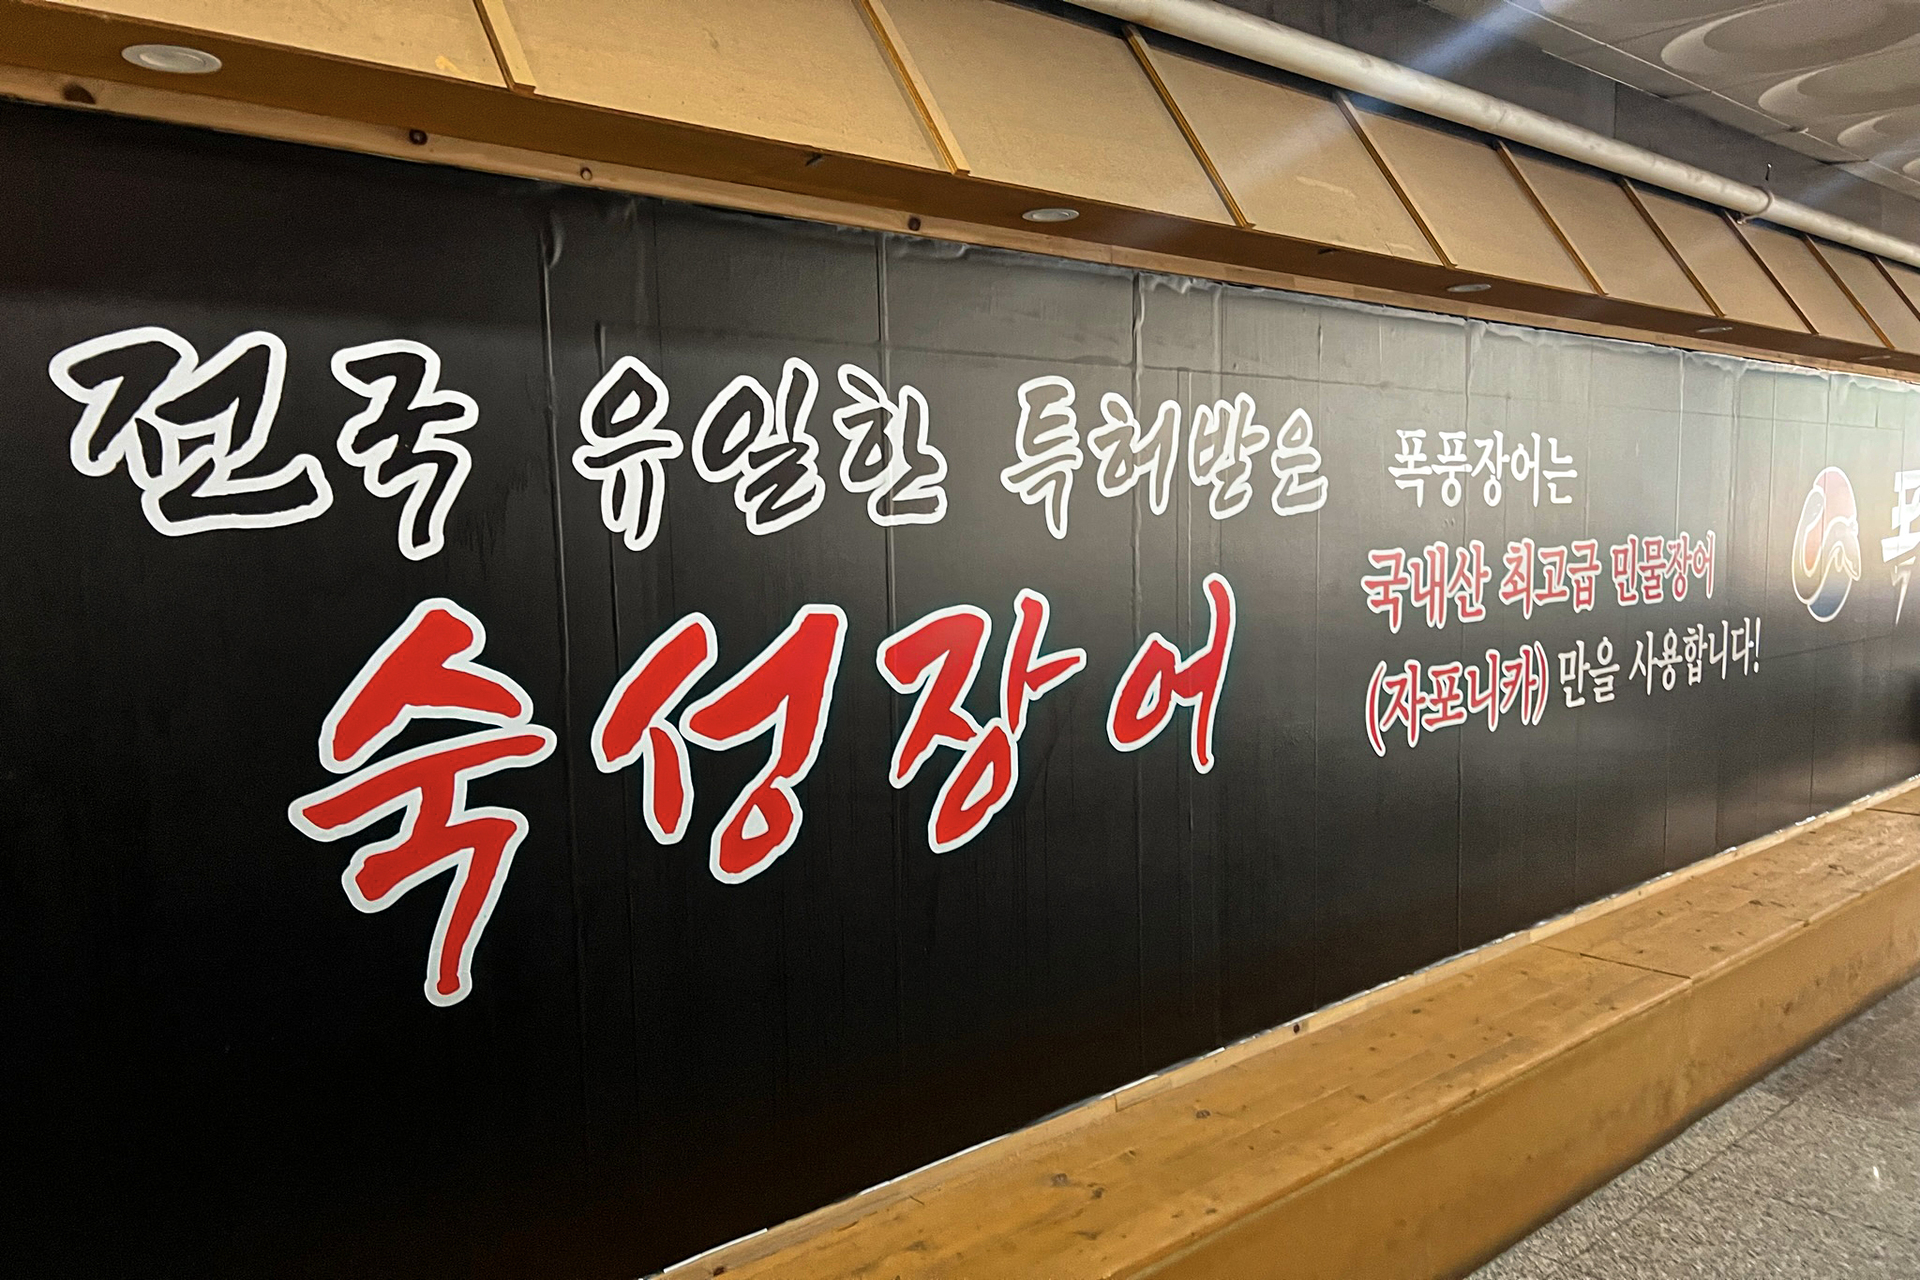 전국 유일한 특허받은
숙성장어
폭풍장어는
국내산 최고급 민물장어
(자포니카)만을 사용합니다!
폭